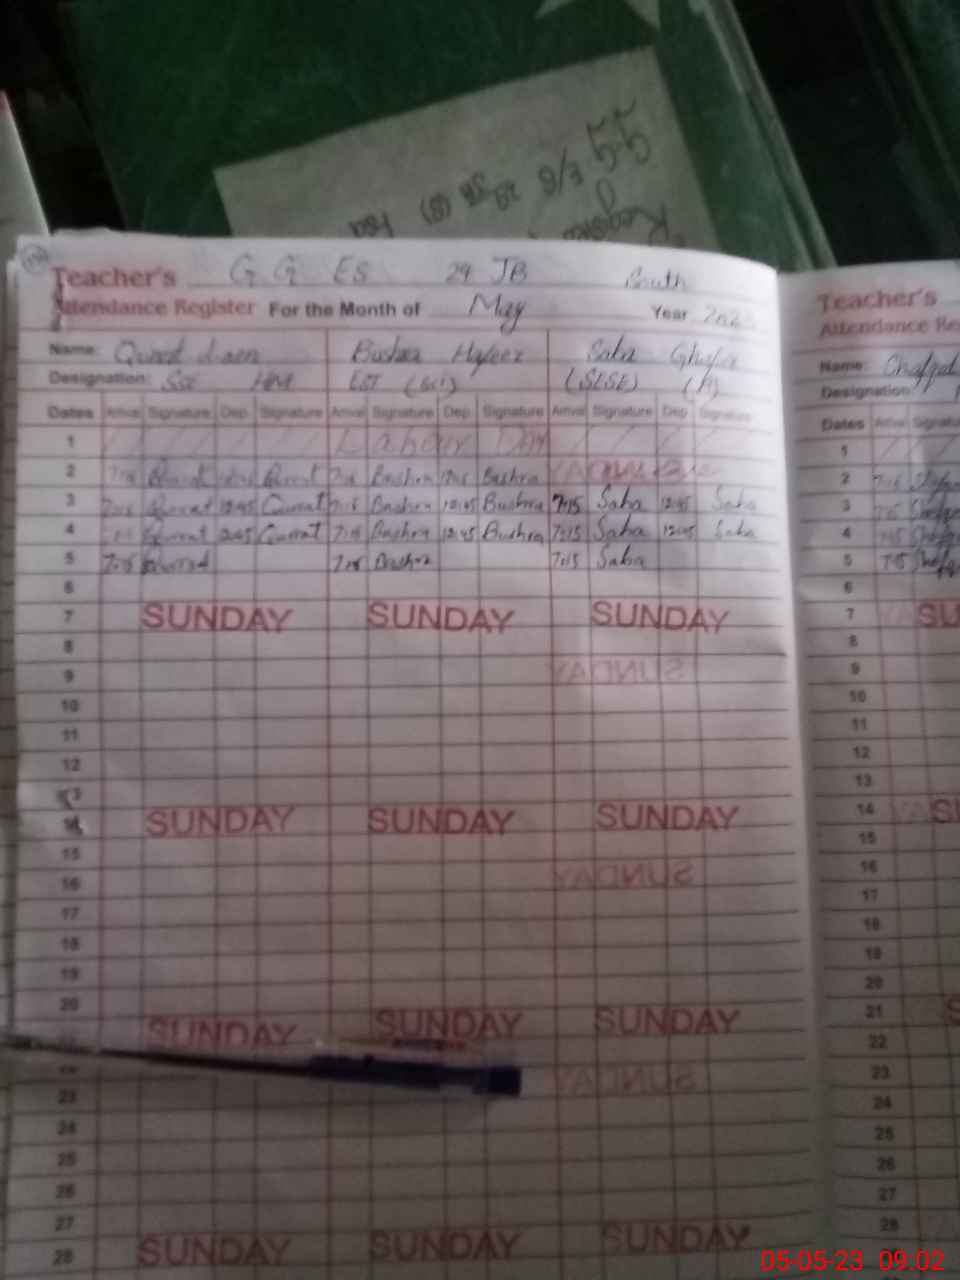 5-5
Teacher's G G ES 29 JB South
Attendance Register For the Month of May Year 2023
Name: Bushra Hafeez Saba
Designation: SSE HM EST (Sci) (SESE)
Dates Arrival Signature Dep. Signature Arrival Signature Dep. Signature Arrival Signature Dep. Signature
1 Labour Day
2 Qurrat Qurrat 7:15 Bushra 12:45 Bushra
3 7:15 Qurrat 12:45 Qurrat 7:15 Bushra 12:45 Bushra 7:15 Saba 12:45 Saba
4 Qurrat 12:45 Qurrat 7:15 Bushra 12:45 Bushra 7:15 Saba 12:45 Saba
5 7:15 Qurrat 7:15 Bushra 7:15 Saba
6
7 SUNDAY SUNDAY SUNDAY
8
9
10
11
12
13
14 SUNDAY SUNDAY SUNDAY
15
16
17
18
19
20
SUNDAY SUNDAY SUNDAY
23
24
25
26
27
28 SUNDAY SUNDAY SUNDAY
Teacher's
Attendance
Name:
Designation
Dates Arrival
1
2 7:15
3
4
5 7:15
6
7
8
9
10
11
12
13
14
15
16
17
18
19
20
21
22
23
24
25
26
27
28
05-05-23 09:02